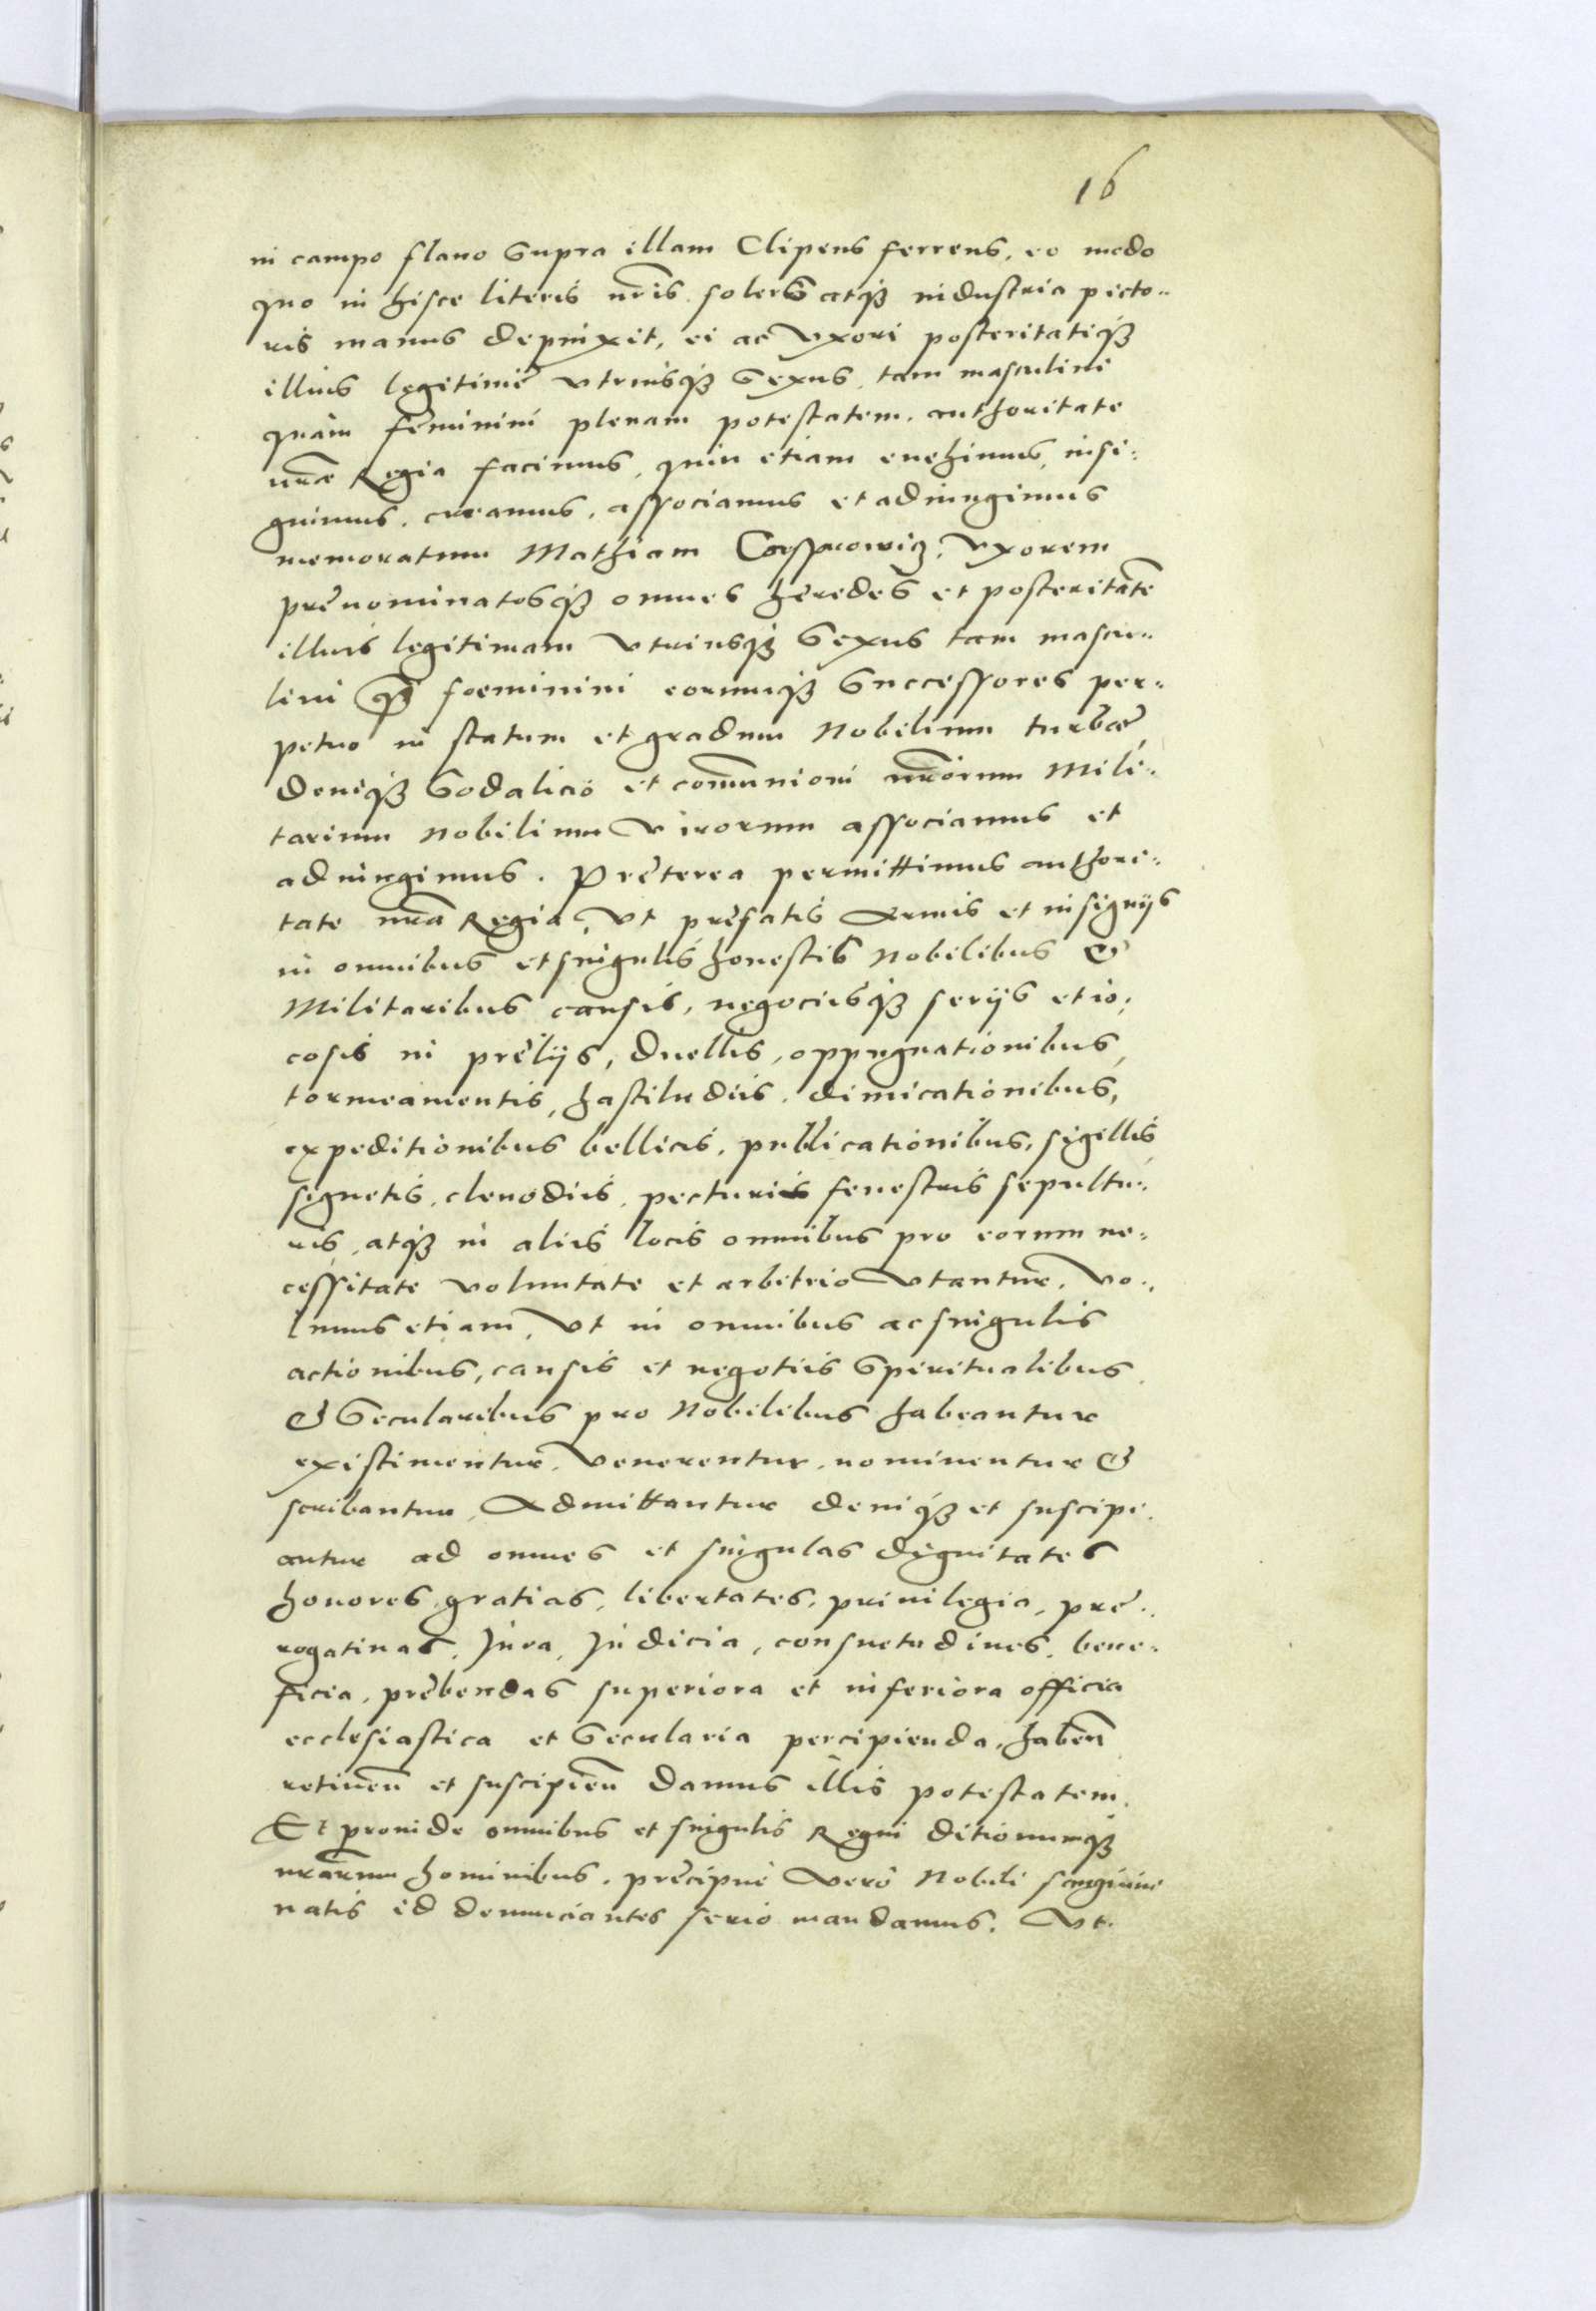 16
in campo flauo Supra illam Clipeus ferreus, eo modo
quo in hisce literis nr̃is solers atq̃ industria picto-
ris manus depinxit, ei ac vxori posteritatiq̃
illius legitimę vtriusq̃ Sexus, tam masculini
quàm fęminini plenam potestatem. authoritate
nr̃a Regia facimus, quin etiam euehimus, insi-
gnimus, creamus, associamus et adiungimus
memoratum Mathiam Casprowicz, vxorem
pręnominatosq̃ omnes hęredes et posteritatẽ
illius legitimam vtriusq̃ Sexus tam mascu-
lini q̃ foeminini eorumq̃ Successores per-
petuo in statum et gradum Nobilium turbæ,
deniq̃ Sodalicio et com̃unioni nr̃orum Mili-
tarium Nobilium virorum associamus et
adiungimus. Pręterea permittimus authori-
tate nr̃a Regia, vt pręfatis Armis et insignijs
in omnibus et singulis honestis Nobilibus &
Militaribus causis, negociisq̃ serijs et io-
cosis in pręlijs, duellis, oppugnationibus,
torneamentis, hastiludiis, dimicationibus,
expeditionibus bellicis, publicationibus, sigillis,
signetis, clenodiis, picturis fenestris sepultu-
ris, atq̃ in aliis locis omnibus pro eorum ne-
cessitate voluntate et arbitrio vtantur. Vo-
lumus etiam, vt in omnibus ac singulis
actionibus, causis et negotiis Spiritualibus
& Secularibus pro Nobilibus habeantur
existimentur, venerentur, nominentur &
scribantur, Admittantur deniq̃ et suscipi-
antur ad omnes et singulas dignitates
honores, gratias, libertates, priuilegia, prę-
rogatiuas, Jura, Judicia, consuetudines, bene-
ficia, prębendas superiora et inferiora officia
ecclesiastica et Secularia percipienda, habeñ
retineñ et suscipieñ damus illis potestatem.
Et prouide omnibus et singulis Regni ditionumq̃
nr̃arum hominibus, pręcipuè verò Nobili sanguine
natis id denunciantes serio mandamus. Vt